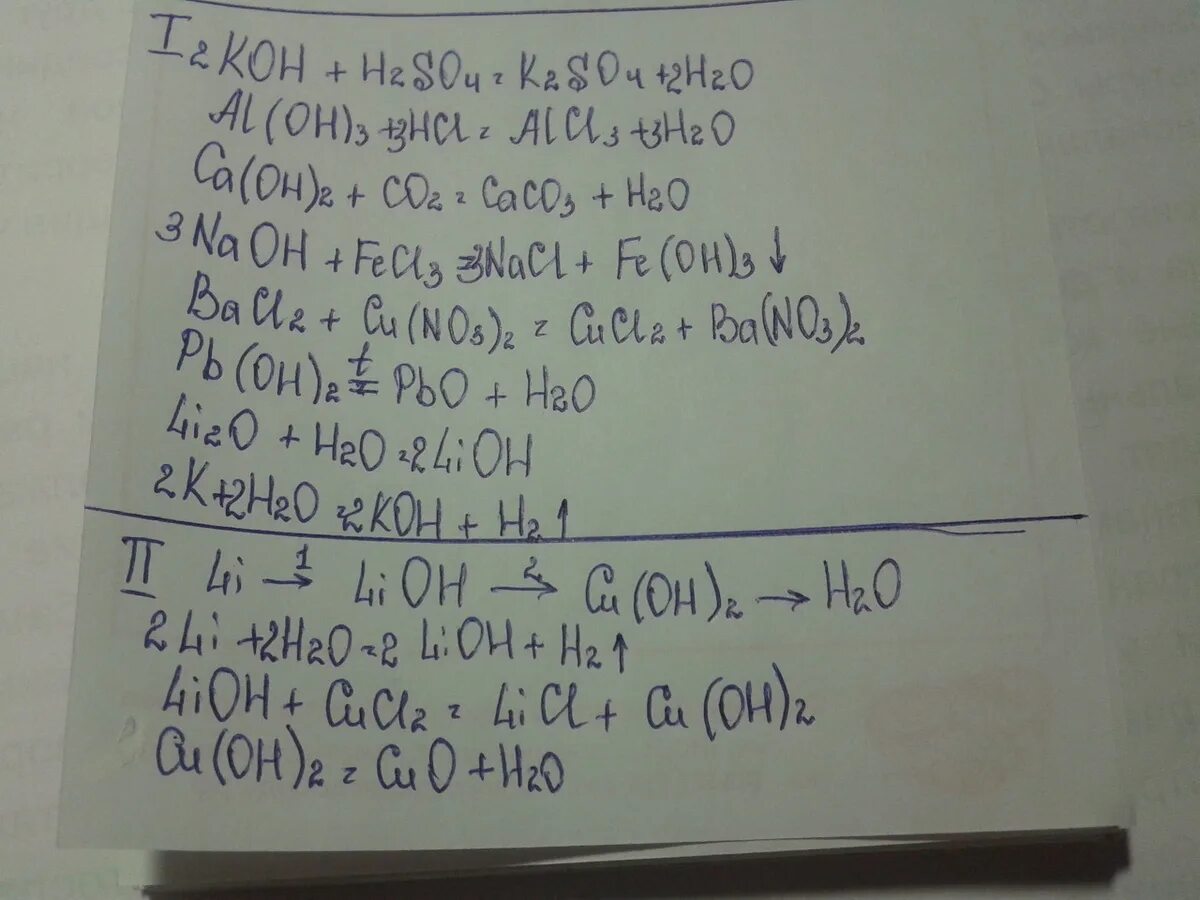 I 2KOH + H2SO4 = K2SO4 + 2H2O
Al(OH)3 + 3HCl = AlCl3 + 3H2O
Ca(OH)2 + CO2 = CaCO3 + H2O
3NaOH + FeCl3 = 3NaCl + Fe(OH)3 ↓
BaCl2 + Cu(NO3)2 = CuCl2 + Ba(NO3)2
Pb(OH)2 t= PbO + H2O
Li2O + H2O = 2LiOH
2K + 2H2O = 2KOH + H2 ↑
II Li 1→ LiOH 2→ Cu(OH)2 → H2O
2Li + 2H2O = 2LiOH + H2 ↑
LiOH + CuCl2 = LiCl + Cu(OH)2
Cu(OH)2 = CuO + H2O